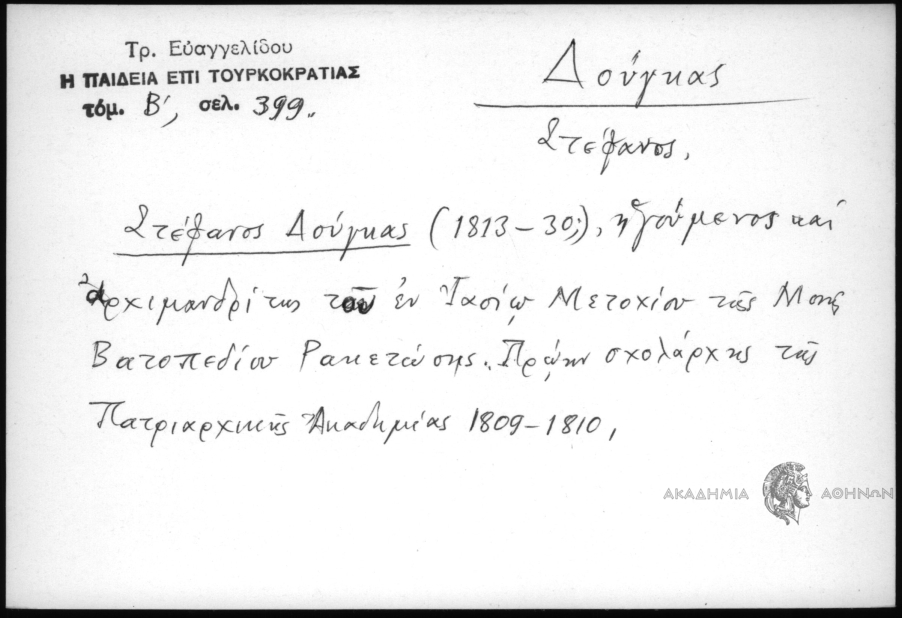 Τρ. Εὐαγγελίδου
Η ΠΑΙΔΕΙΑ ΕΠΙ ΤΟΥΡΚΟΚΡΑΤΙΑΣ
τόμ. Β´, σελ. 399.
Δούγκας
Στέφανος.
Στέφανος Δούγκας (1813-30;), ἡγούμενος καί
ἀρχιμανδρίτης τοῦ ἐν Ἰασίῳ Μετοχίου τῆς Μονῆς
Βατοπεδίου Ρακετώσης. Πρώην σχολάρχης τῆς
Πατριαρχικῆς Ἀκαδημίας 1809-1810,
ΑΚΑΔΗΜΙΑ ΑΘΗΝΩΝ